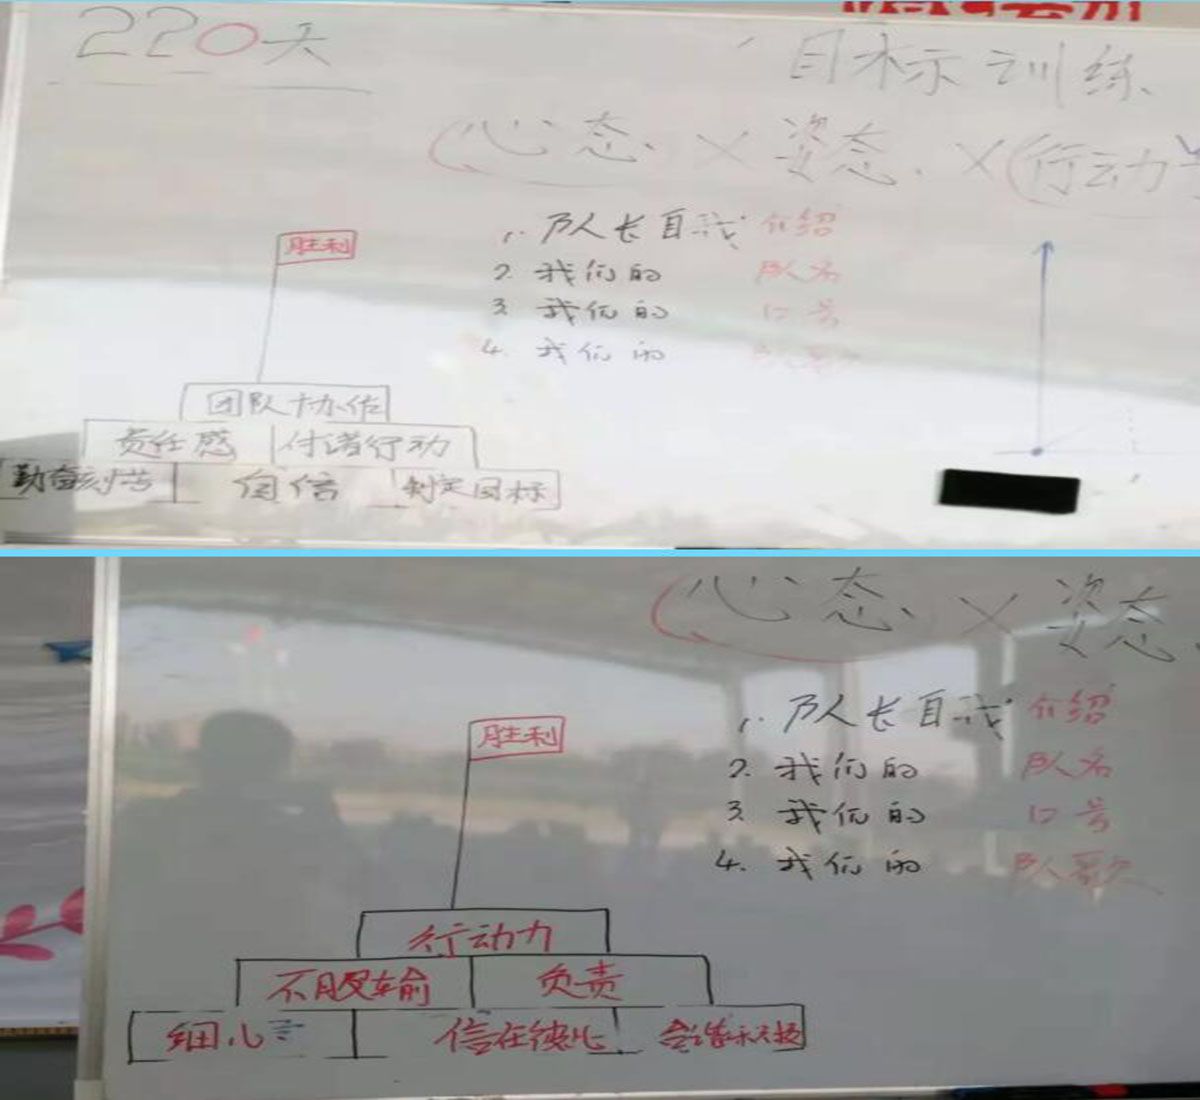 220天
目标训练
心态、×姿态、×(行动
1. 队长自我 介绍
2. 我们的 队名
3. 我们的 口号
4. 我们的 队歌
胜利
团队协作
责任感 付诸行动
勤奋刻苦 自信 制定目标
心态、×姿态、
1. 队长自我 介绍
2. 我们的 队名
3. 我们的 口号
4. 我们的 队歌
胜利
行动力
不服输 负责
细心